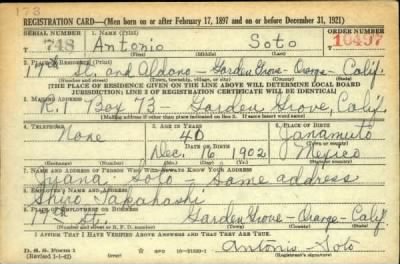 173
REGISTRATION CARD—(Men born on or after February 17, 1897 and on or before December 31, 1921)
SERIAL NUMBER 1. NAME (Print) ORDER NUMBER
748 Antonio Soto 10497
(First) (Middle) (Last)
2. PLACE OF RESIDENCE (Print)
17th St. and Aldano - Garden Grove - Orange - Calif.
(Number and street) (Town, township, village, or city) (County) (State)
[THE PLACE OF RESIDENCE GIVEN ON THE LINE ABOVE WILL DETERMINE LOCAL BOARD
JURISDICTION; LINE 2 OF REGISTRATION CERTIFICATE WILL BE IDENTICAL]
3. MAILING ADDRESS
R.1 Box 73 - Garden Grove, Calif
[Mailing address if other than place indicated on line 2. If same insert word same]
4. TELEPHONE 5. AGE IN YEARS 6. PLACE OF BIRTH
None 40
DATE OF BIRTH
Dec. 16 1902 Mexico
(Mo.) (Day) (Yr.)
7. NAME AND ADDRESS OF PERSON WHO WILL ALWAYS KNOW YOUR ADDRESS
Juana Soto - Same address
8. EMPLOYER'S NAME AND ADDRESS
Shiro Takahashi
9. PLACE OF EMPLOYMENT OR BUSINESS
17th St. Garden Grove - Orange - Calif.
(Number and street or R. F. D. number) (Town) (County) (State)
I AFFIRM THAT I HAVE VERIFIED ABOVE ANSWERS AND THAT THEY ARE TRUE.
D. S. S. Form 1 GPO
(Revised 1-1-42) Antonio - Soto
(Registrant's signature)